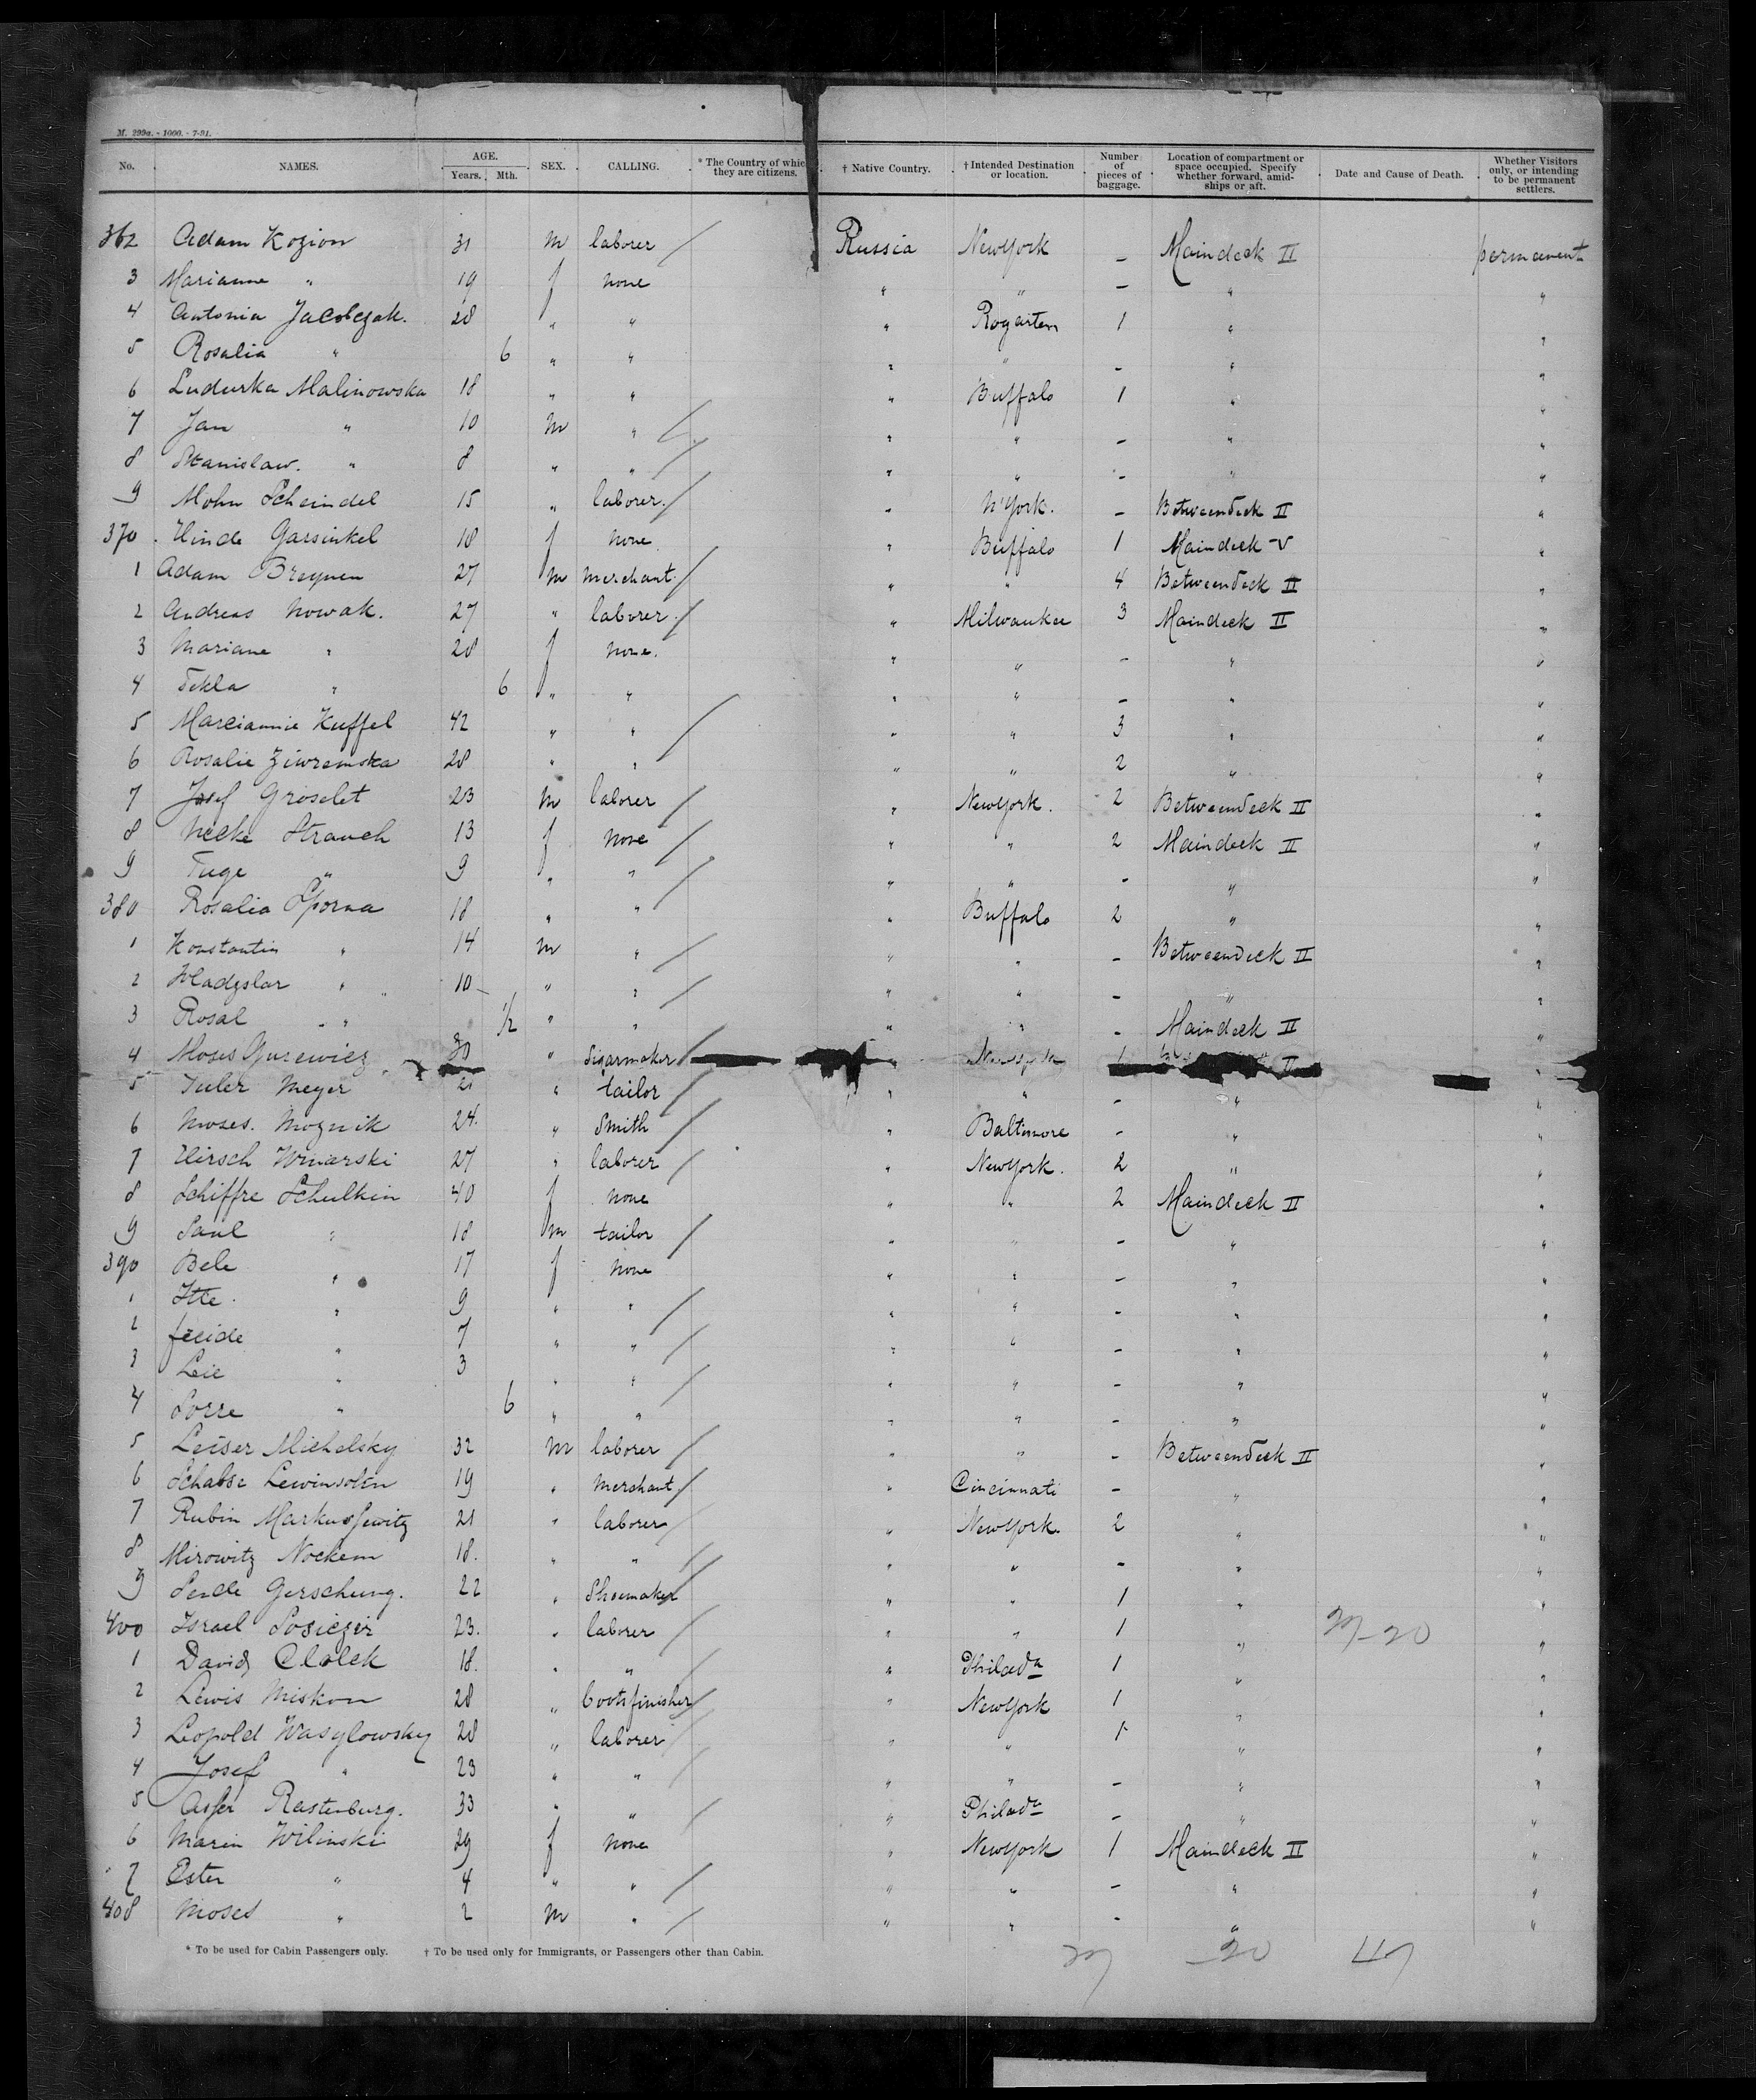 M. 299a. - 1000. - 7-91.
No. NAMES. AGE. Years. Mth. SEX. CALLING. * The Country of which they are citizens. † Native Country. † Intended Destination or location. Number of pieces of baggage. Location of compartment or space occupied. Specify whether forward, amidships or aft. Date and Cause of Death. Whether Visitors only, or intending to be permanent settlers.
362 Adam Kozion 31 m laborer / Russia New York – Maindeck II permanent
3 Marianne " 19 f none " " – " "
4 Antonia Jacobczak. 28 " " " 1 " "
5 Rosalia " 6 " " " " – " "
6 Malinowska 18 " " " Buffalo 1 " "
7 Jan " 10 m " / " " – " "
8 Stanislaw. " 8 " " / " " – " "
9 Mohn Scheindel 15 " laborer. / " N'York. – Betweendeck II "
370 Hinde Garsinkel 18 f none " Buffalo 1 Maindeck V "
1 Adam 27 m merchant. / " " 4 Betweendeck II "
2 Andreas Nowak. 27 " laborer. / " Milwaukee 3 Maindeck II "
3 Mariane " 28 f none. " " – " "
4 Tekla " 6 " " " " – " "
5 Kuffel 42 " " / " " 3 " "
6 Rosalie 28 " " " " 2 " "
7 Josef Groselet 23 m laborer / " New York. 2 Betweendeck II "
8 Strauch 13 f none / " " 2 Maindeck II "
9 " 9 " " / " " – " "
380 Rosalia Sporna 18 " " " Buffalo 2 " "
1 Konstantin " 14 m " / " " – Betweendeck II "
2 Wladyslar " 10 " " / " " – " "
3 Rosal " 1/2 " " " " – Maindeck II "
4 Moses Gurewicz 30 " Sigarmaker / " New York II "
5 Meyer " tailor / " " – " "
6 Moses. Moznik 24. " Smith / " Baltimore – " "
7 Hirsch Winarski 27 " laborer / " New York. 2 " "
8 Schiffre Schulkin 40 f none " " 2 Maindeck II "
9 Saul " 18 m tailor / " " – " "
390 Bele " 17 f none " " – " "
1 Itte. " 9 " " / " " – " "
2 " 7 " " / " " – " "
3 Leie " 3 " " / " " – " "
4 Sorre " 6 " " " " – " "
5 Leiser Michelsky 32 m laborer / " " – Betweendeck II "
6 Schabse Lewinsohn 19 " merchant / " Cincinnati – " "
7 Rubin 21 " laborer / " New York 2 " "
8 Mirowitz Nochem 18. " " / " " – " "
9 22 " Shoemaker / " " 1 " "
400 Israel 23. " laborer / " " 1 " "
1 David Clolek 18. " " / " Philada 1 " "
2 Lewis Miskon 28 " bootsfinisher / " New York 1 " "
3 Leopold Wasylowsky 28 " laborer / " " 1 " "
4 Josef " 23 " " / " " – " "
5 Rastenburg. 33 " " / " Philada – " "
6 Marin Wilinski 29 f none " New York 1 Maindeck II "
7 Ester " 4 " " / " " – " "
408 Moses " 2 m " / " " – " "
* To be used for Cabin Passengers only. † To be used only for Immigrants, or Passengers other than Cabin.
20